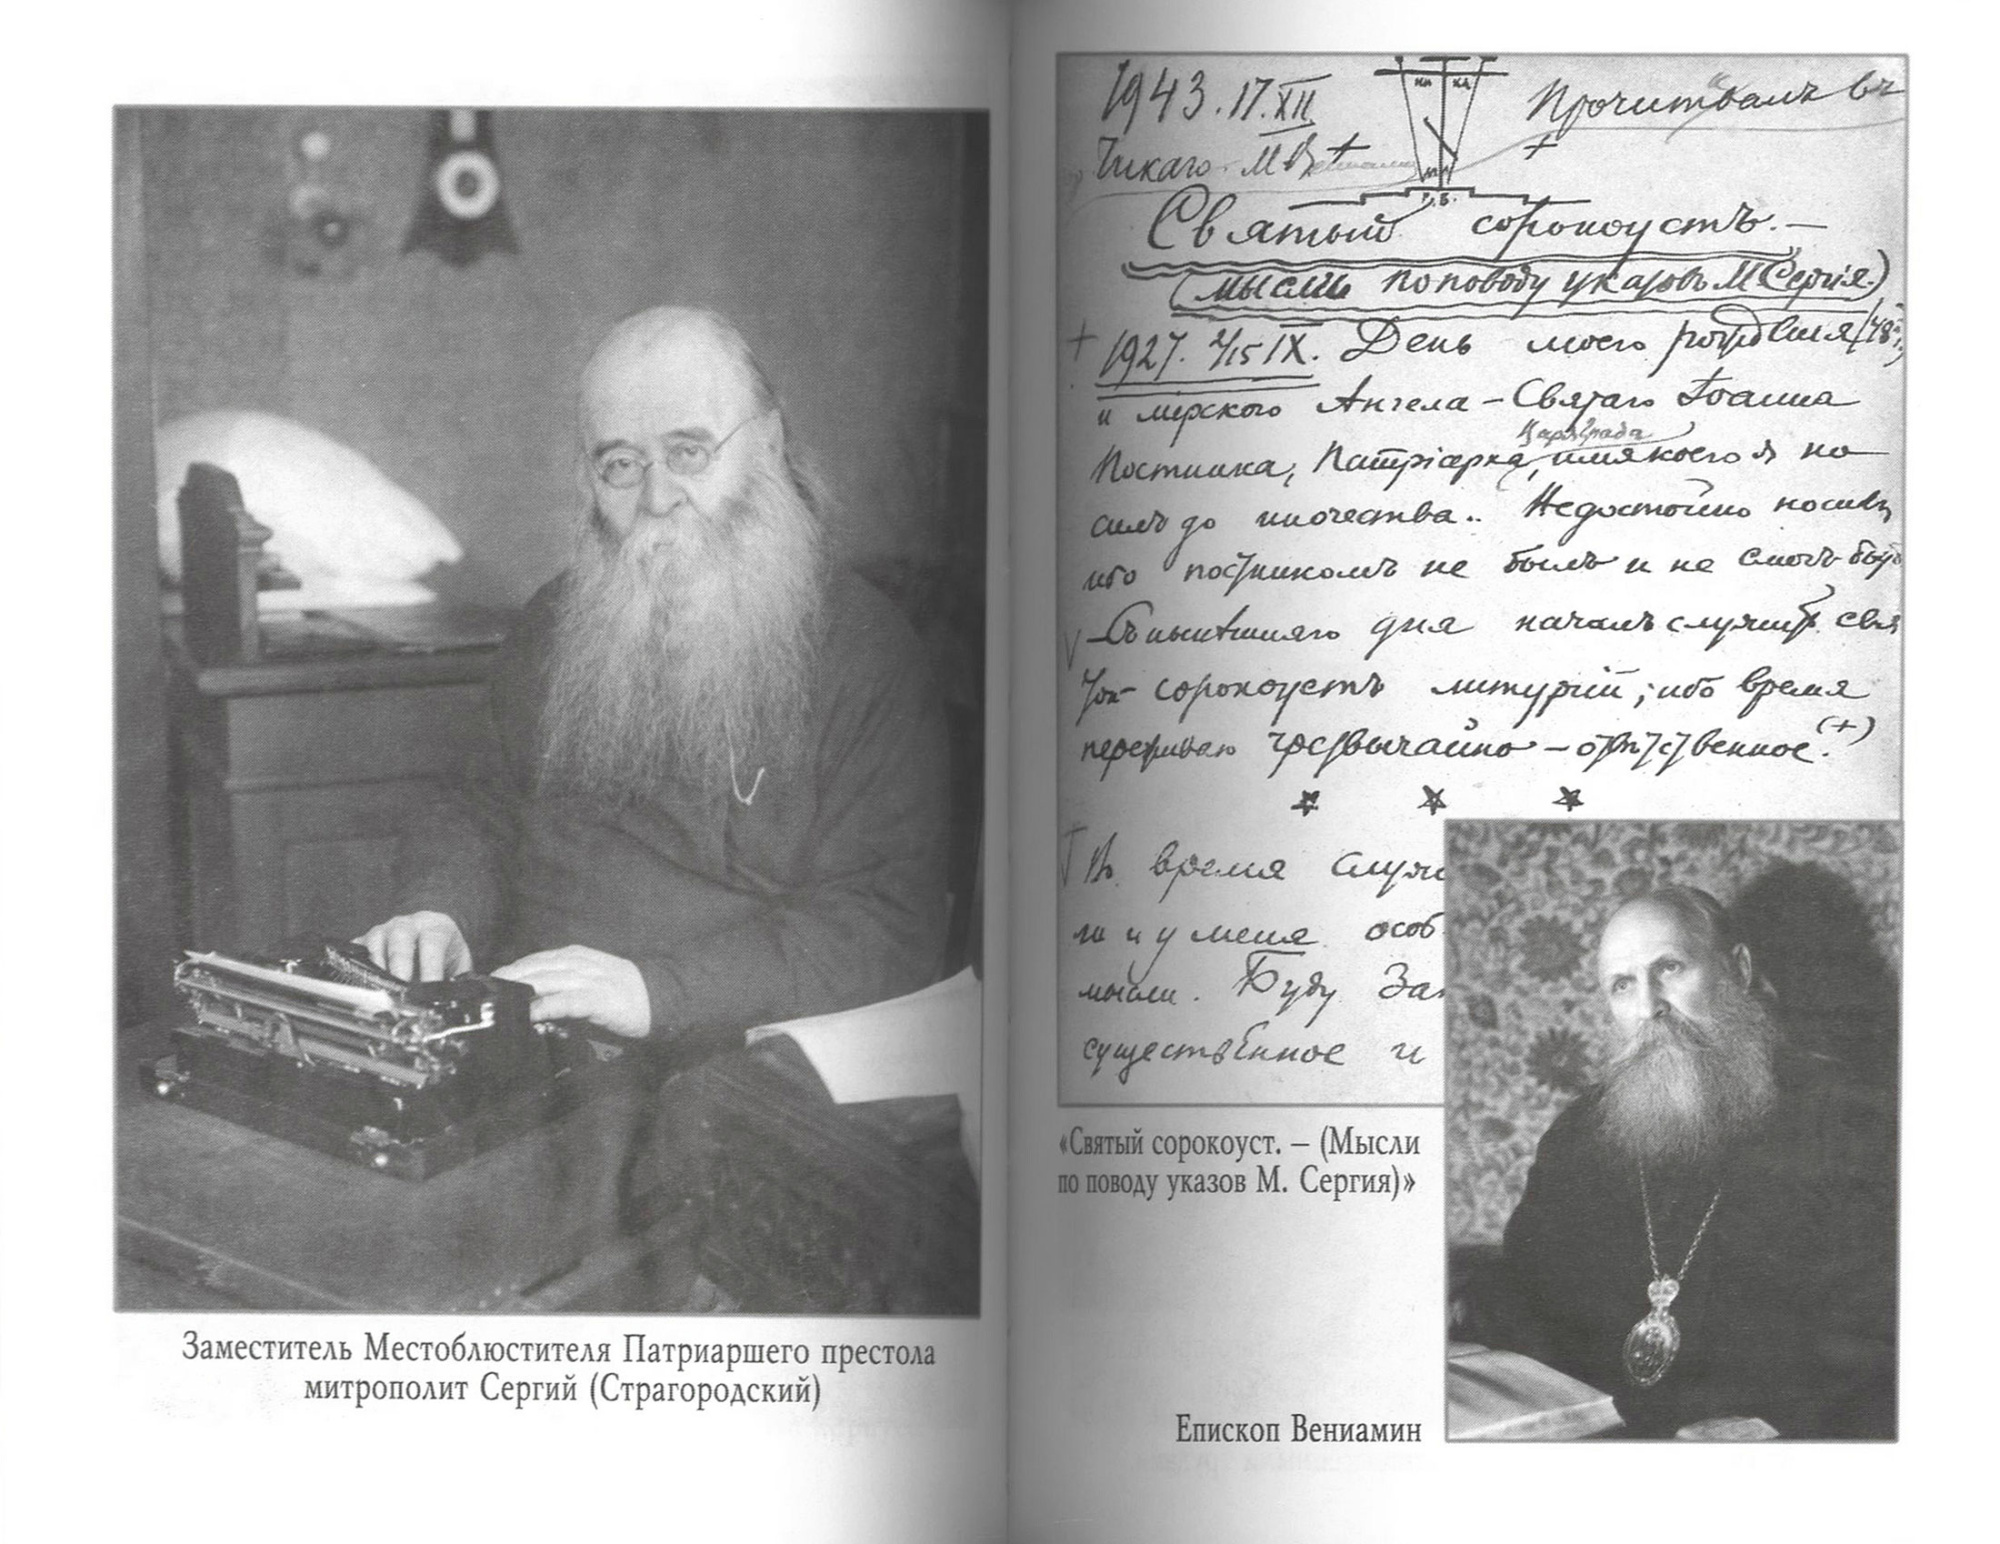 Заместитель Местоблюстителя Патриаршего престола
митрополит Сергий (Страгородский)
1943. 17. XII
Прочитвалъ въ
Чикаго. М В
Святый сорокоустъ. —
(мысли по поводу указовъ М Сергія.)
1927. 2/15 IX. День моего рождения (48
и мірского Ангела – Святаго Іоанна
Царяграда
Постника, Патріарха, имя коего я но
силъ до иночества.. Недостойно носилъ
ибо постникомъ не былъ и не смогъ быть
– Съ нынѣшняго дня началъ служить свя
той сорокоустъ литургій, ибо время
переживаю чрезвычайно – отвѣтственное. (+)
Во время служ
ли и у меня особ
мысли. Буду Зап
существенное и
«Святый сорокоуст. – (Мысли
по поводу указов М. Сергия)»
Епископ Вениамин